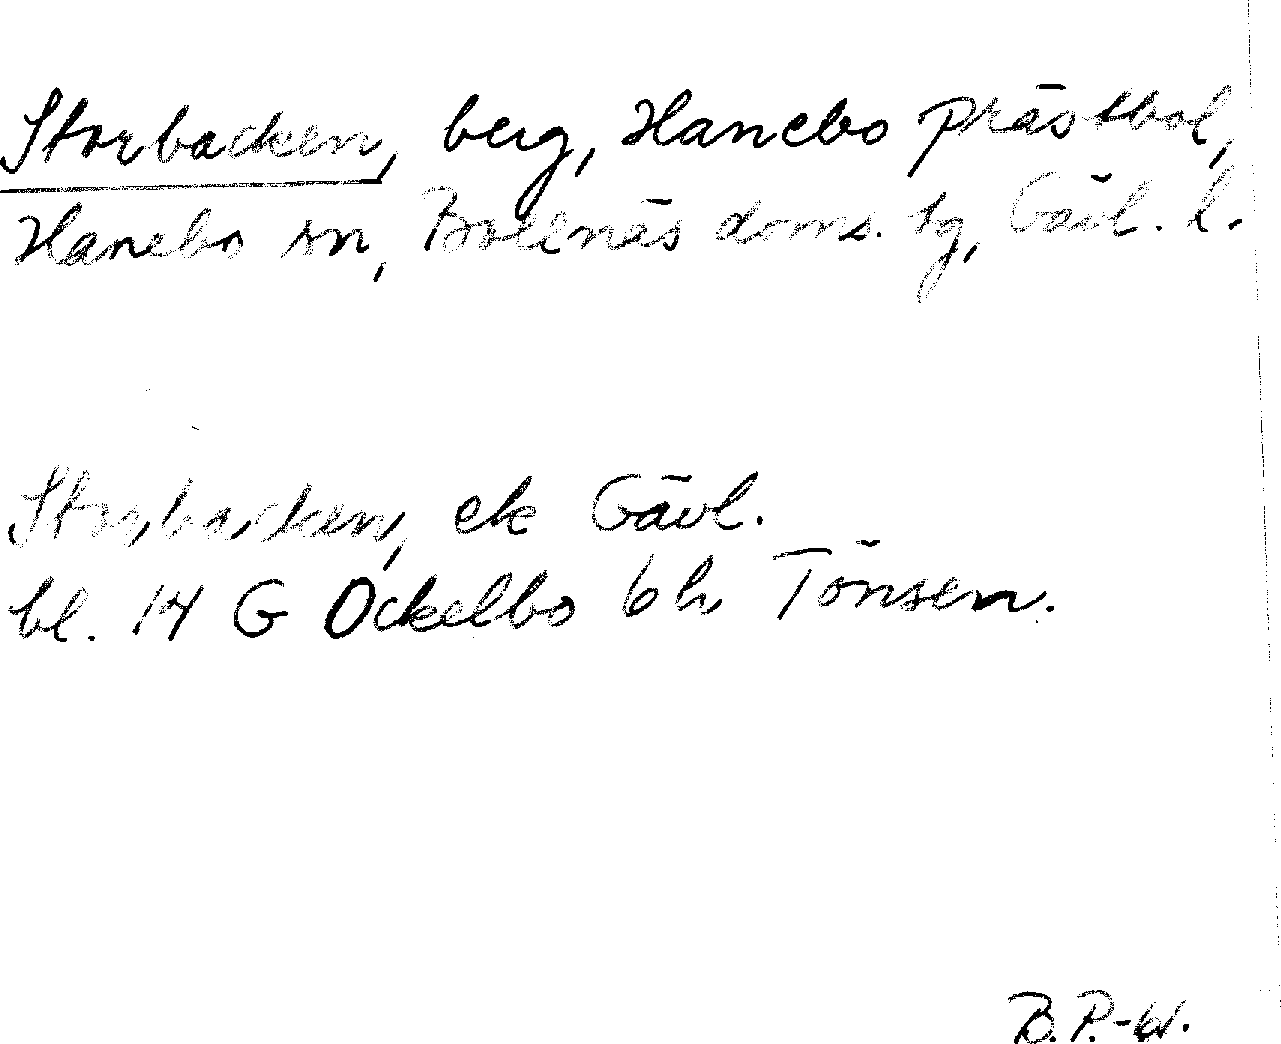 Storbacken, berg, Hanebo prästbol,
Hanebo sn, Bollnäs doms. tg, Gävl. l.
Storbacken, ek Gävl.
bl. 14 G Ockelbo 6 h Tönsen.
B.P.-61.